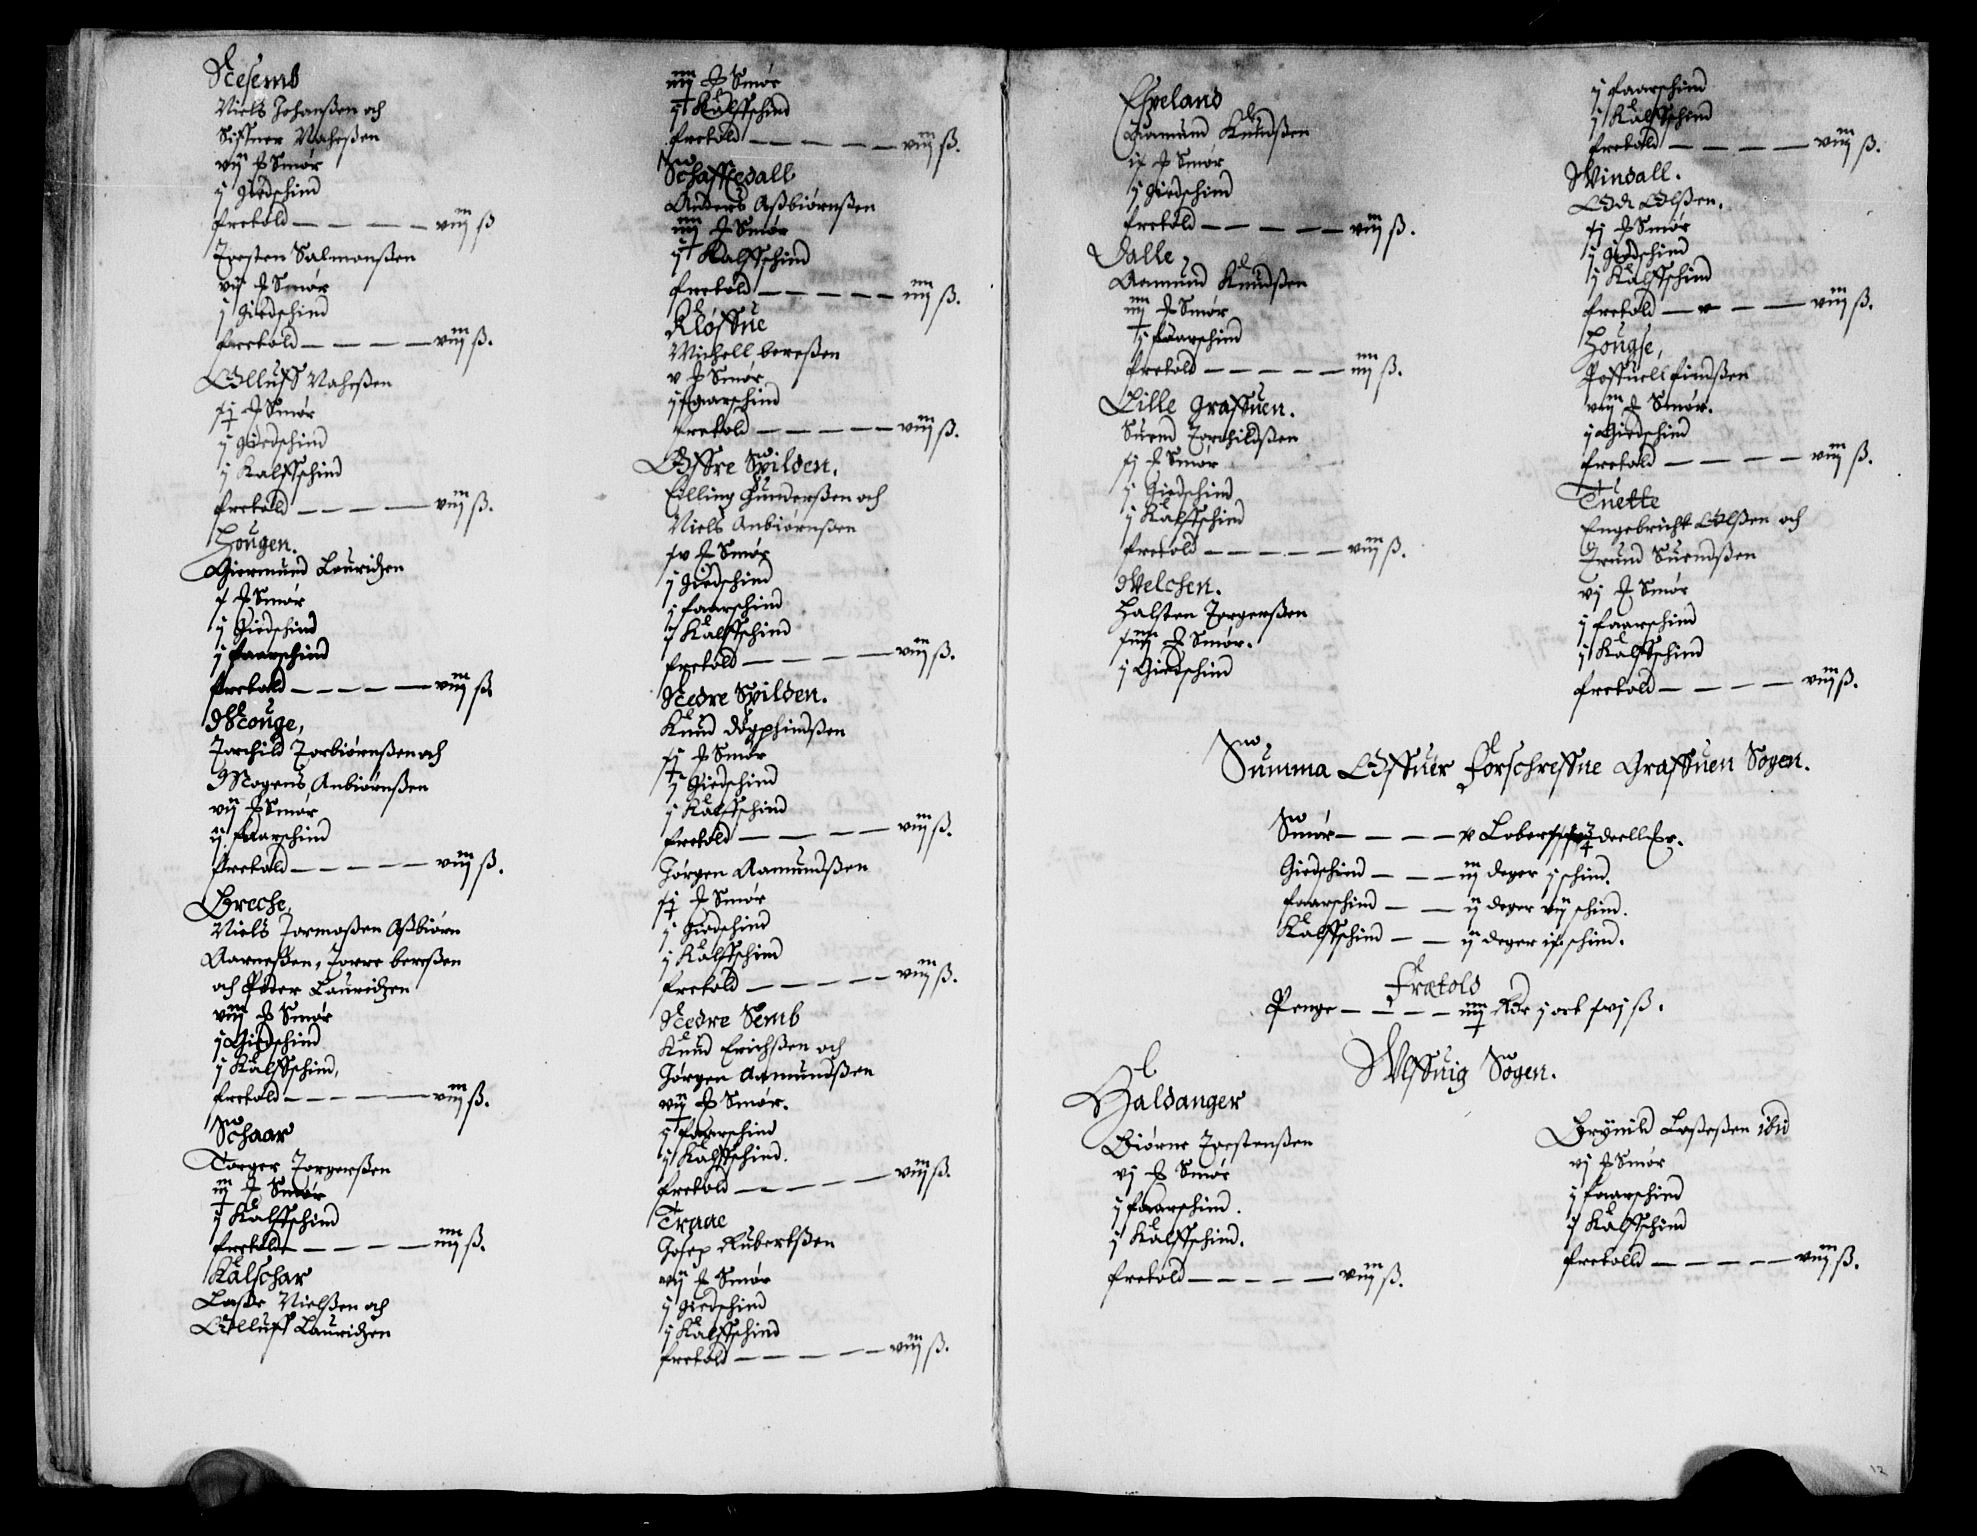 Nesemb
Niels Johanßen och
Siffuer Naheßen
vij ₰ Smør
j Giedschind
fretold — — — — viij ß
Torsten Salmonßen
vij ₰ Smør
j Giedschind
fretold — — — — viij ß.
Olluff Naheßen
xj ₰ Smør
j Giedschind
j Kalffschind
fretold — — — — viij ß.
Hougen.
Giermund Lauridzen
x ₰ Smør
j Giedschind
j faarschind
fretold — — — — viij ß
Mouge,
Torchild Torbiørnßen och
Mogens Anbiørnßen
vij ₰ Smør
ij faarschind
fretold — — — — viij ß.
Breche,
Niels Tormoßen Aßbiørn
Aarneßen, Torre bereßen
och Peder Lauridzen
viij ₰ Smør
j Giedschind
j Kalffschind,
fretold — — — — viij ß.
Schaar
Torger Torgerßen
iij ₰ Smør
j Kalffschind
fretold — — — — iiij ß.
Kalschar
Laße Nielßen och
Olluff Lauridzen
iiij ₰ Smør
j Kalffschind
fretold — — — — viij ß.
Schafftedall
Anders Aßbiørnßen
iiij ₰ Smør
j Kalffschind
fretold — — — — iiij ß.
Kløffue
Michell bereßen
v ₰ Smør
j faarschind
fretold — — — — viij ß.
Øffre Spilden.
Elling Gunderßen och
Niels Anbiørnßen
xv ₰ Smør
j Giedschind
j faarschind
j Kalffschind
fretold — — — — viij ß.
Nedre Spilden.
Knud Dagphindßen
xj ₰ Smør
j Giedschind
j Kalffschind
fretold — — — — viij ß.
Jørgen Aamundßen
xj ₰ Smør
j Giedschind
j Kalffschind
fretold — — — — viij ß.
Nedre Semb
Knud Erichßen och
Jørgen Aamundßen
vij ₰ Smør.
j faarschind
j Kalffschind.
fretold — — — — viij ß.
Traae
Josep Rubertßen
vij ₰ Smør
j Giedschind
j Kalffschind
fretold — — — — viij ß.
Espeland
Aamund Knudßen
ix ₰ Smør
j Giedschind
fretold — — — — viij ß.
Dalle,
Aamund Knudßen
iiij ₰ Smør
j faarschind
fretold — — — — iiij ß.
Lille Graffuen.
Suend Torchildßen
xj ₰ Smør
j Giedschind
j Kalffschind
fretold — — — — viij ß.
Velchen.
Halsten Torgerßen
xiiij ₰ Smør.
j Giedschind
j faarschind
j Kalffschind
fretold — — — — viij ß.
Windall.
Odt Olßen.
xj ₰ Smør
j Giedschind
j Kalffschind
fretold — — — — viij ß.
Hougse,
Poffuell findßen
viij ₰ Smør.
j Giedschind
fretold — — — — viij ß.
Tuette
Engebricht Olßen och
Trund Suendßen
vj ₰ Smør
j faarschind
j Kalffschind
fretold — — — — viij ß.
Summa Offuer forschreffne Graffuen Sogen.
Smør — — — — v Løber deell Er.
Giedschind — — — iij deger j schind.
faarschind — — ij deger vij schind.
Kalffschind — — ij deger ix schind.
Frætold
Penge — — — — iiij Rdr j ort xvj ß.
Wlffuig Sogen.
Haldanger
Biørne Torstenßen
vj ₰ Smør
j faarschind.
j Kalffschind.
fretold — — — — viij ß.
Brynild Laßeßen ibid
vj ₰ Smør
j faarschind
j Kalffschind
fretolld — — — — viij ß.
12